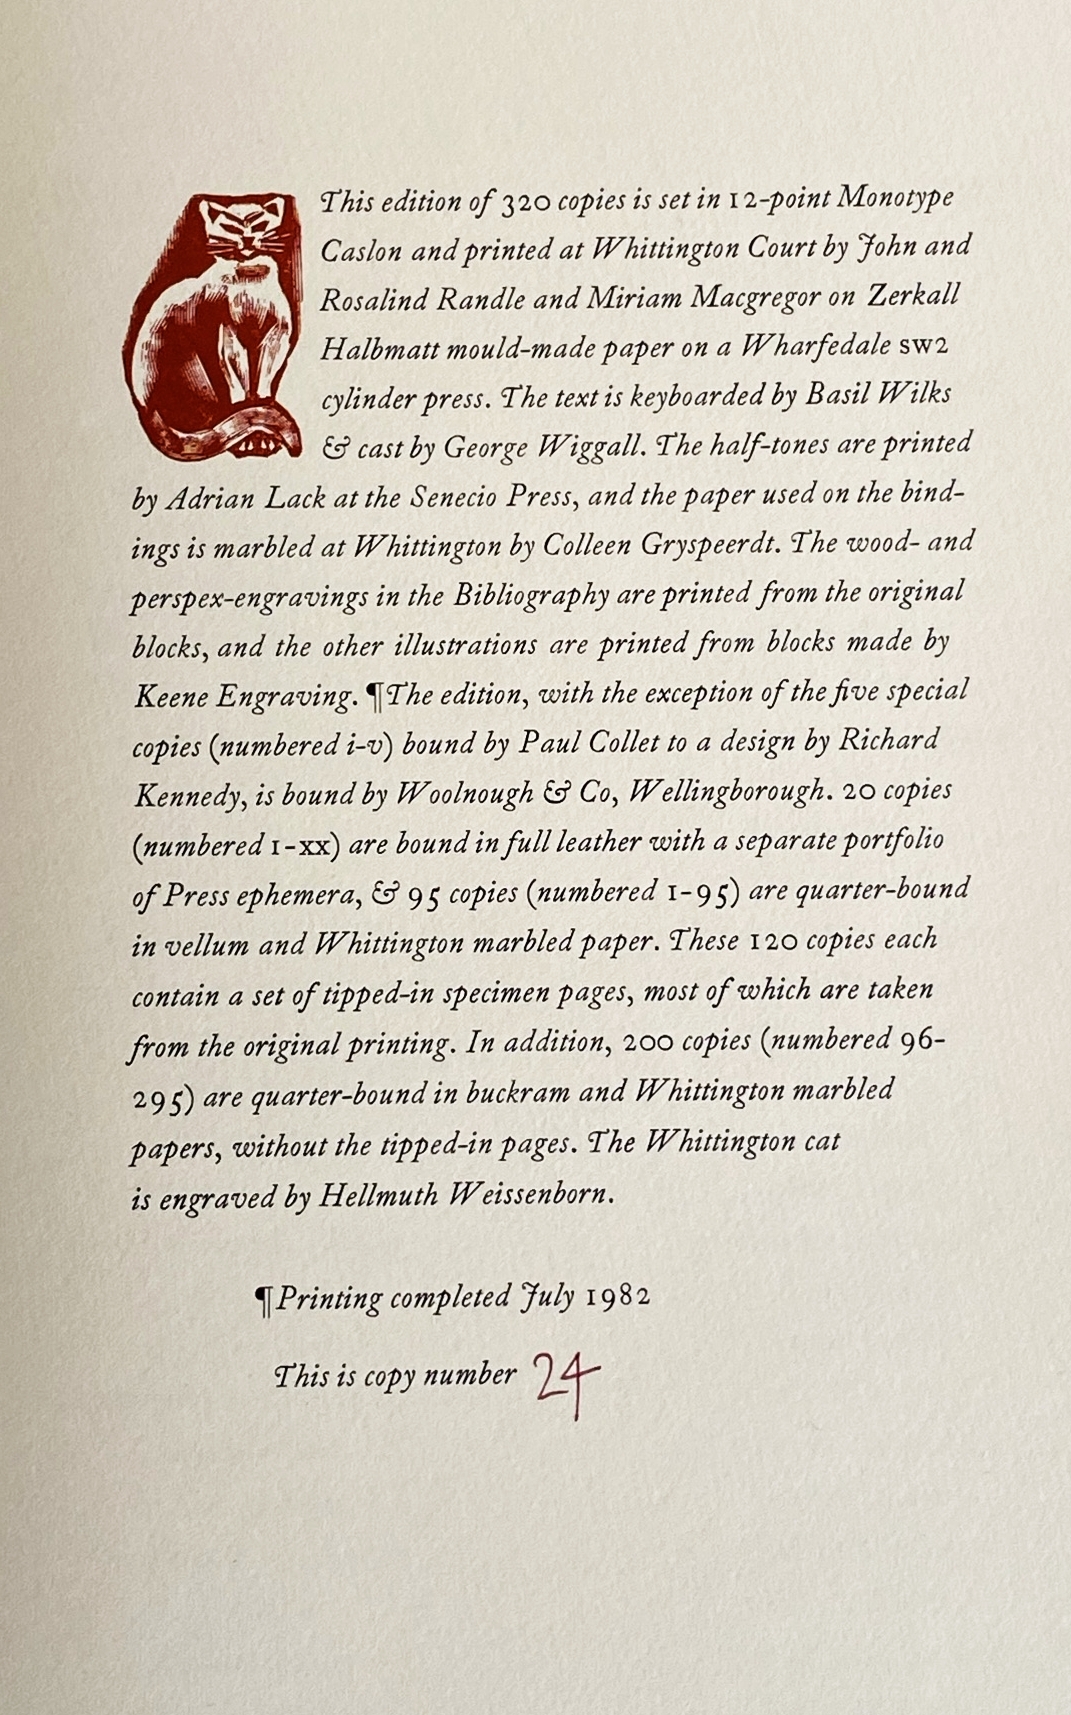 This edition of 320 copies is set in 12-point Monotype
Caslon and printed at Whittington Court by John and
Rosalind Randle and Miriam Macgregor on Zerkall
Halbmatt mould-made paper on a Wharfedale SW2
cylinder press. The text is keyboarded by Basil Wilks
& cast by George Wiggall. The half-tones are printed
by Adrian Lack at the Senecio Press, and the paper used on the bind-
ings is marbled at Whittington by Colleen Gryspeerdt. The wood- and
perspex-engravings in the Bibliography are printed from the original
blocks, and the other illustrations are printed from blocks made by
Keene Engraving. ¶The edition, with the exception of the five special
copies (numbered i-v) bound by Paul Collet to a design by Richard
Kennedy, is bound by Woolnough & Co, Wellingborough. 20 copies
(numbered I-XX) are bound in full leather with a separate portfolio
of Press ephemera, & 95 copies (numbered 1-95) are quarter-bound
in vellum and Whittington marbled paper. These 120 copies each
contain a set of tipped-in specimen pages, most of which are taken
from the original printing. In addition, 200 copies (numbered 96-
295) are quarter-bound in buckram and Whittington marbled
papers, without the tipped-in pages. The Whittington cat
is engraved by Hellmuth Weissenborn.
¶Printing completed July 1982
This is copy number 24